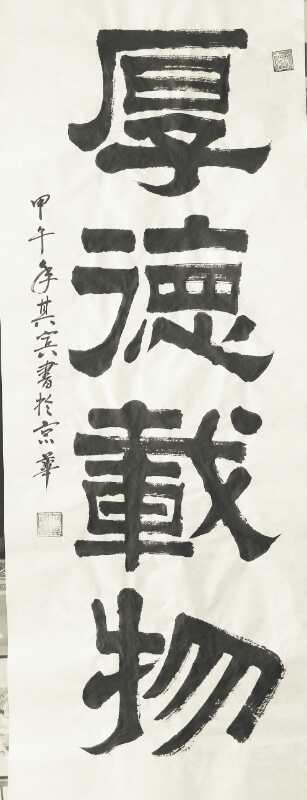 厚德載物
甲午年其宾書於京華